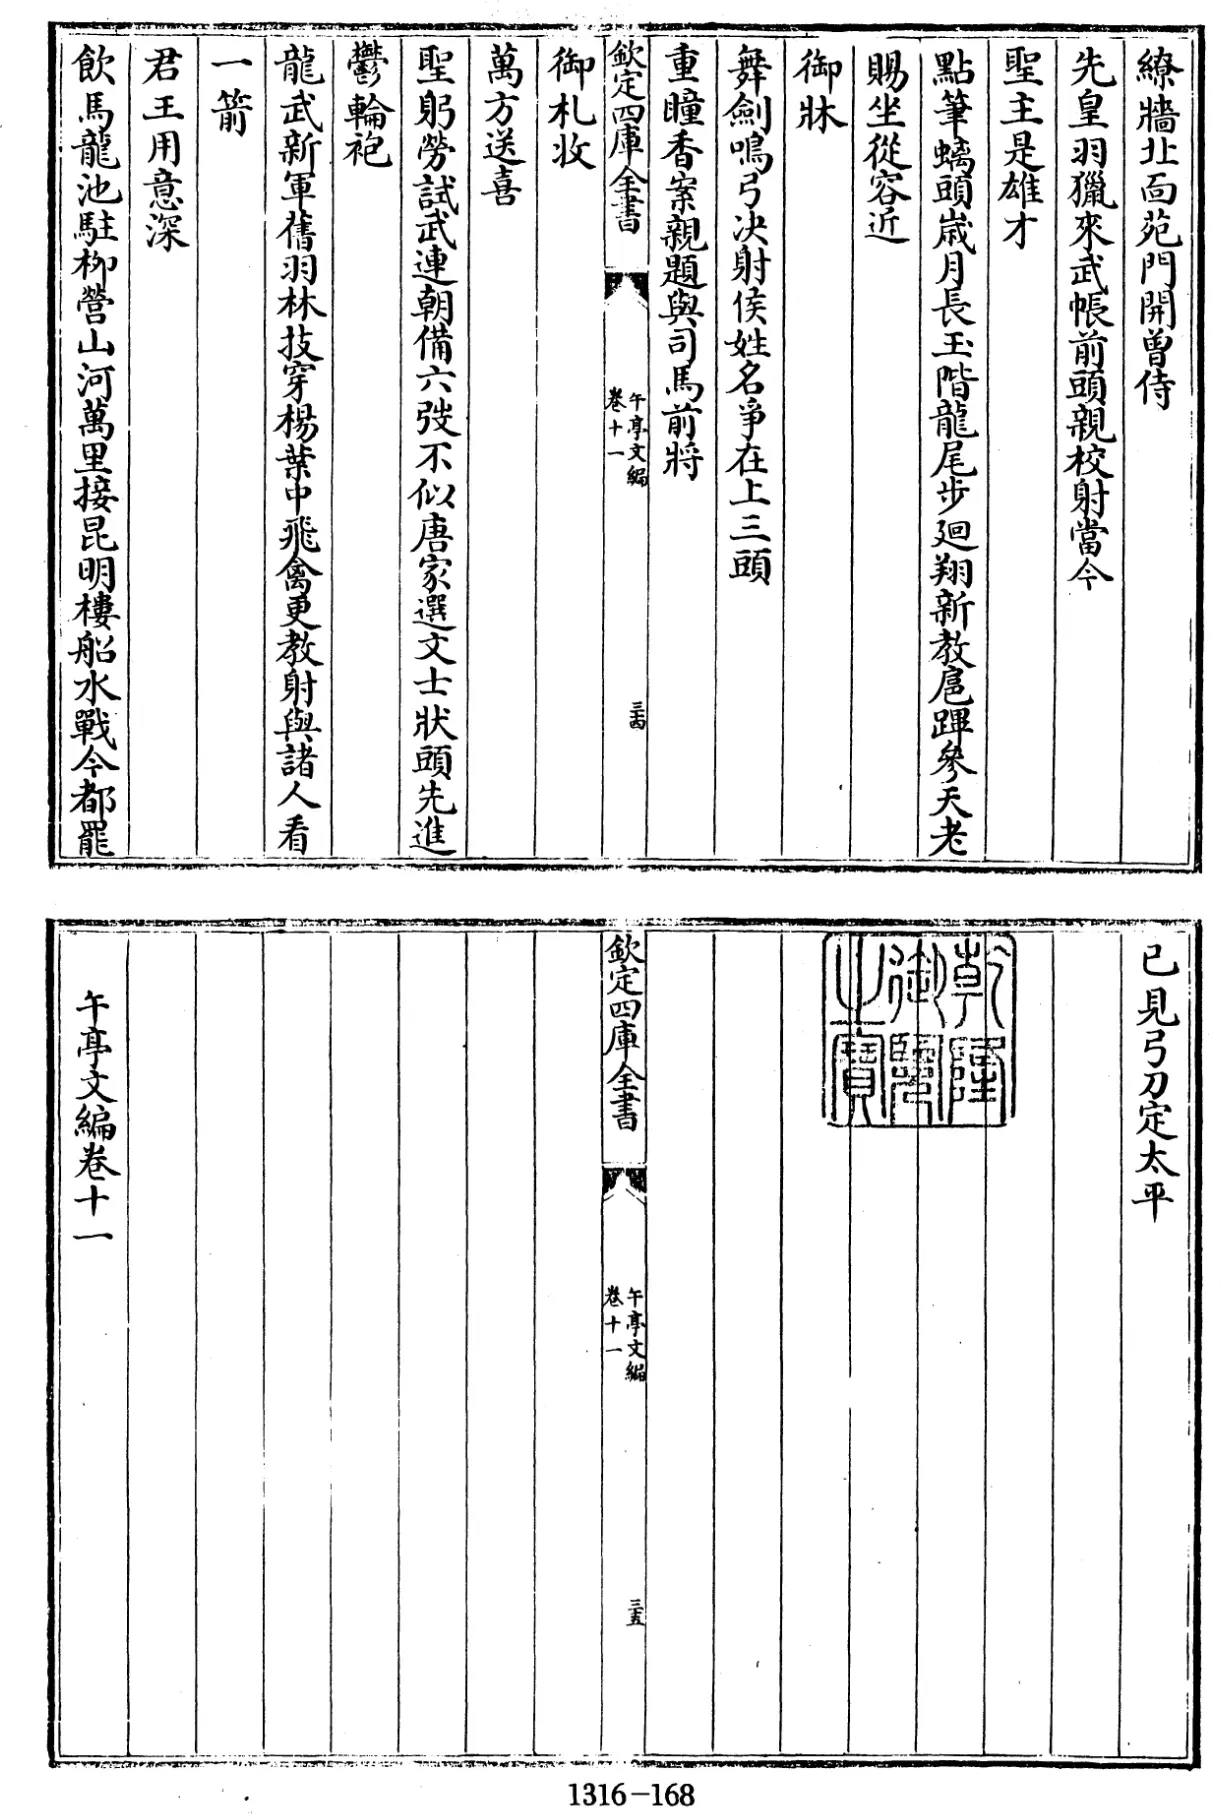 繚牆北面苑門開曾侍
先皇羽獵來武帳前頭親校射當今
聖主是雄才
點筆螭頭嵗月長玉階龍尾步廻翔新教扈蹕參天老
賜坐從容近
御牀
舞劍鳴弓決射侯姓名爭在上三頭
重瞳香案親題與司馬前將
欽定四庫全書
午亭文編
卷十一
三十四
御札收
萬方送喜
聖躬勞試武連朝備六弢不似唐家選文士狀頭先進
鬱輪袍
龍武新軍舊羽林技穿楊葉中飛禽更教射與諸人看
一箭
君王用意深
飲馬龍池駐柳營山河萬里接昆明樓船水戰今都罷
已見弓刀定太平
乾隆
御覽
之寶
欽定四庫全書
午亭文編
卷十一
三十五
午亭文編卷十一
1316-168